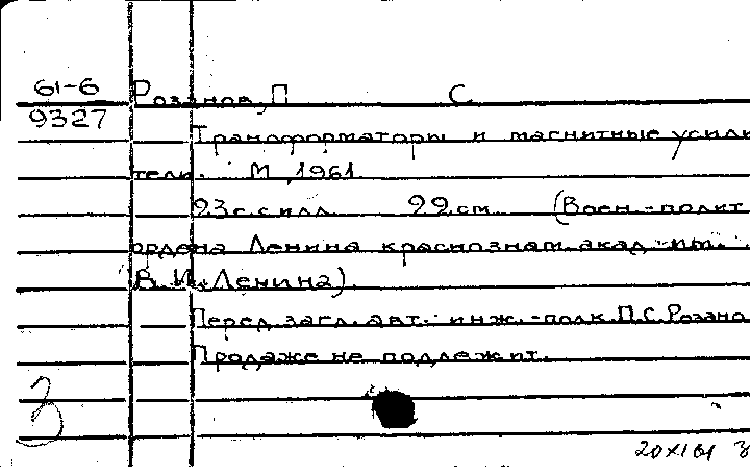 61-6
9327
Розанов, П С.
Трансформаторы и магнитные усили
тели. М, 1961
23 с. с илл. 22 см. (Воен.-полит
ордена Ленина краснознам. акад. им.
В. И. Ленина).
Перед загл. авт.: инж.-полк. П. С. Розано
Продаже не подлежит.
3
20 XI 61